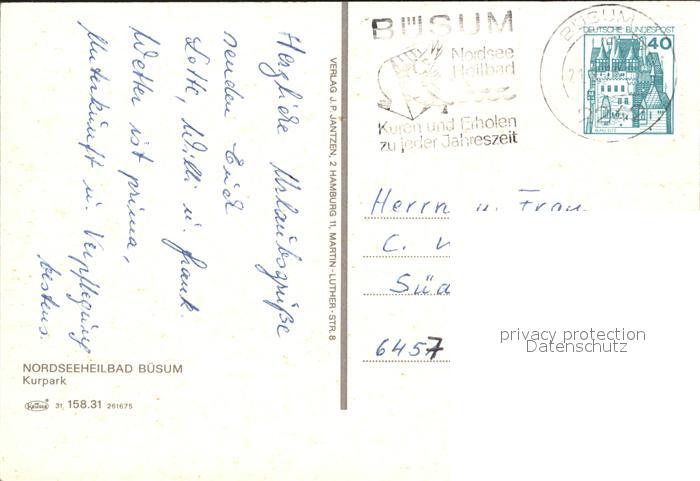 Herzliche Urlaubsgrüße
senden Euch
Lotte, Willi u. Frank.
Wetter ist prima,
Unterkunft u. Verpflegung
bestens.
NORDSEEHEILBAD BÜSUM
Kurpark
Krüger 31 158.31 261675
VERLAG J. P. JANTZEN, 2 HAMBURG 11, MARTIN-LUTHER-STR. 8
BÜSUM
Nordsee
Heilbad
Kuren und Erholen
zu jeder Jahreszeit
BÜSUM
DEUTSCHE BUNDESPOST
40
BURG ELTZ
2242
Herrn u. Frau
C.
Süd
6457
privacy protection
Datenschutz